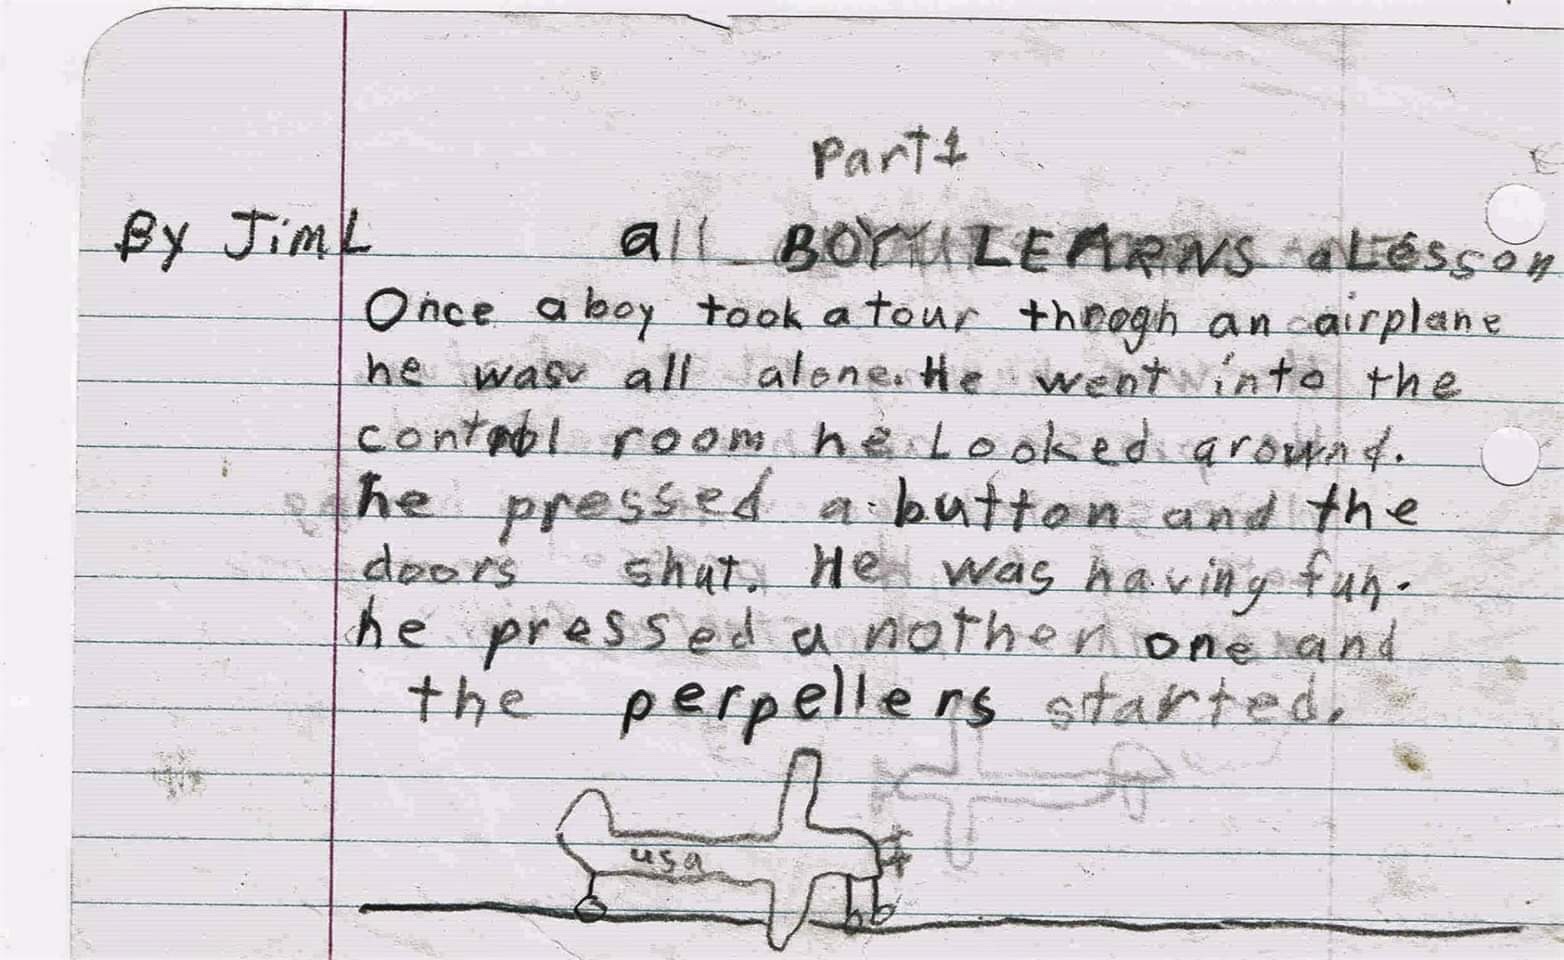 Part 1
By Jim L all BOY LEARNS a Lesson
Once a boy took a tour throgh an airplane
he was all alone. He went into the
control room he Looked around.
he pressed a button and the
doors shut. He was having fun.
he pressed a nother one and
the perpellers started.
usa